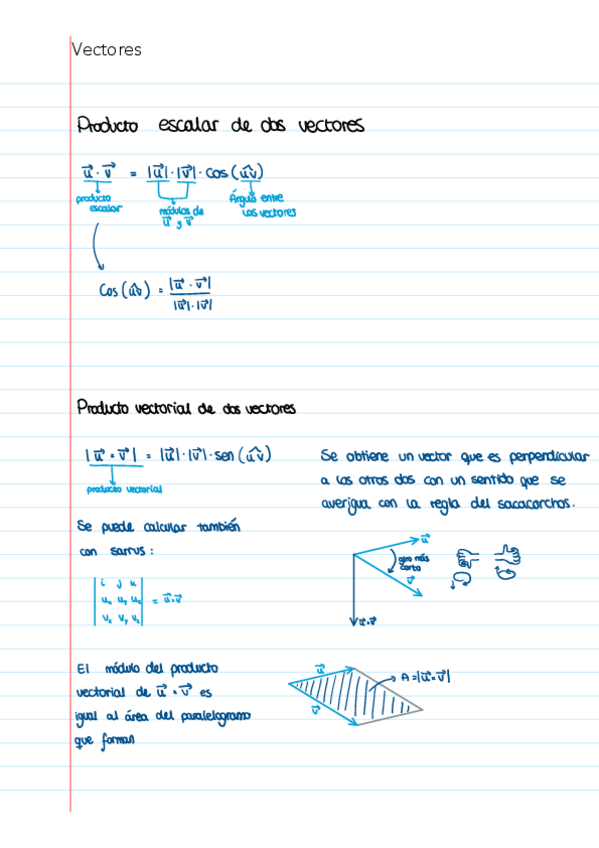 Vectores
Producto escalar de dos vectores
u⃗ · v⃗ = |u⃗| · |v⃗| · cos (u͡v)
producto escalar
módulos de u⃗ y v⃗
Ángulo entre los vectores
Cos (u͡v) = |u⃗ · v⃗| / |u⃗| · |v⃗|
Producto vectorial de dos vectores
|u⃗ × v⃗| = |u⃗| · |v⃗| · sen (u͡v)
producto vectorial
Se obtiene un vector que es perpendicular
a los otros dos con un sentido que se
averigua con la regla del sacacorchos.
Se puede calcular también
con sarrus:
i j k
uₓ uᵧ u_z = u⃗ × v⃗
vₓ vᵧ v_z
u⃗
giro más
corto
v⃗
u⃗ × v⃗
El módulo del producto
vectorial de u⃗ × v⃗ es
igual al área del paralelogramo
que forman
u⃗
v⃗
A = |u⃗ × v⃗|